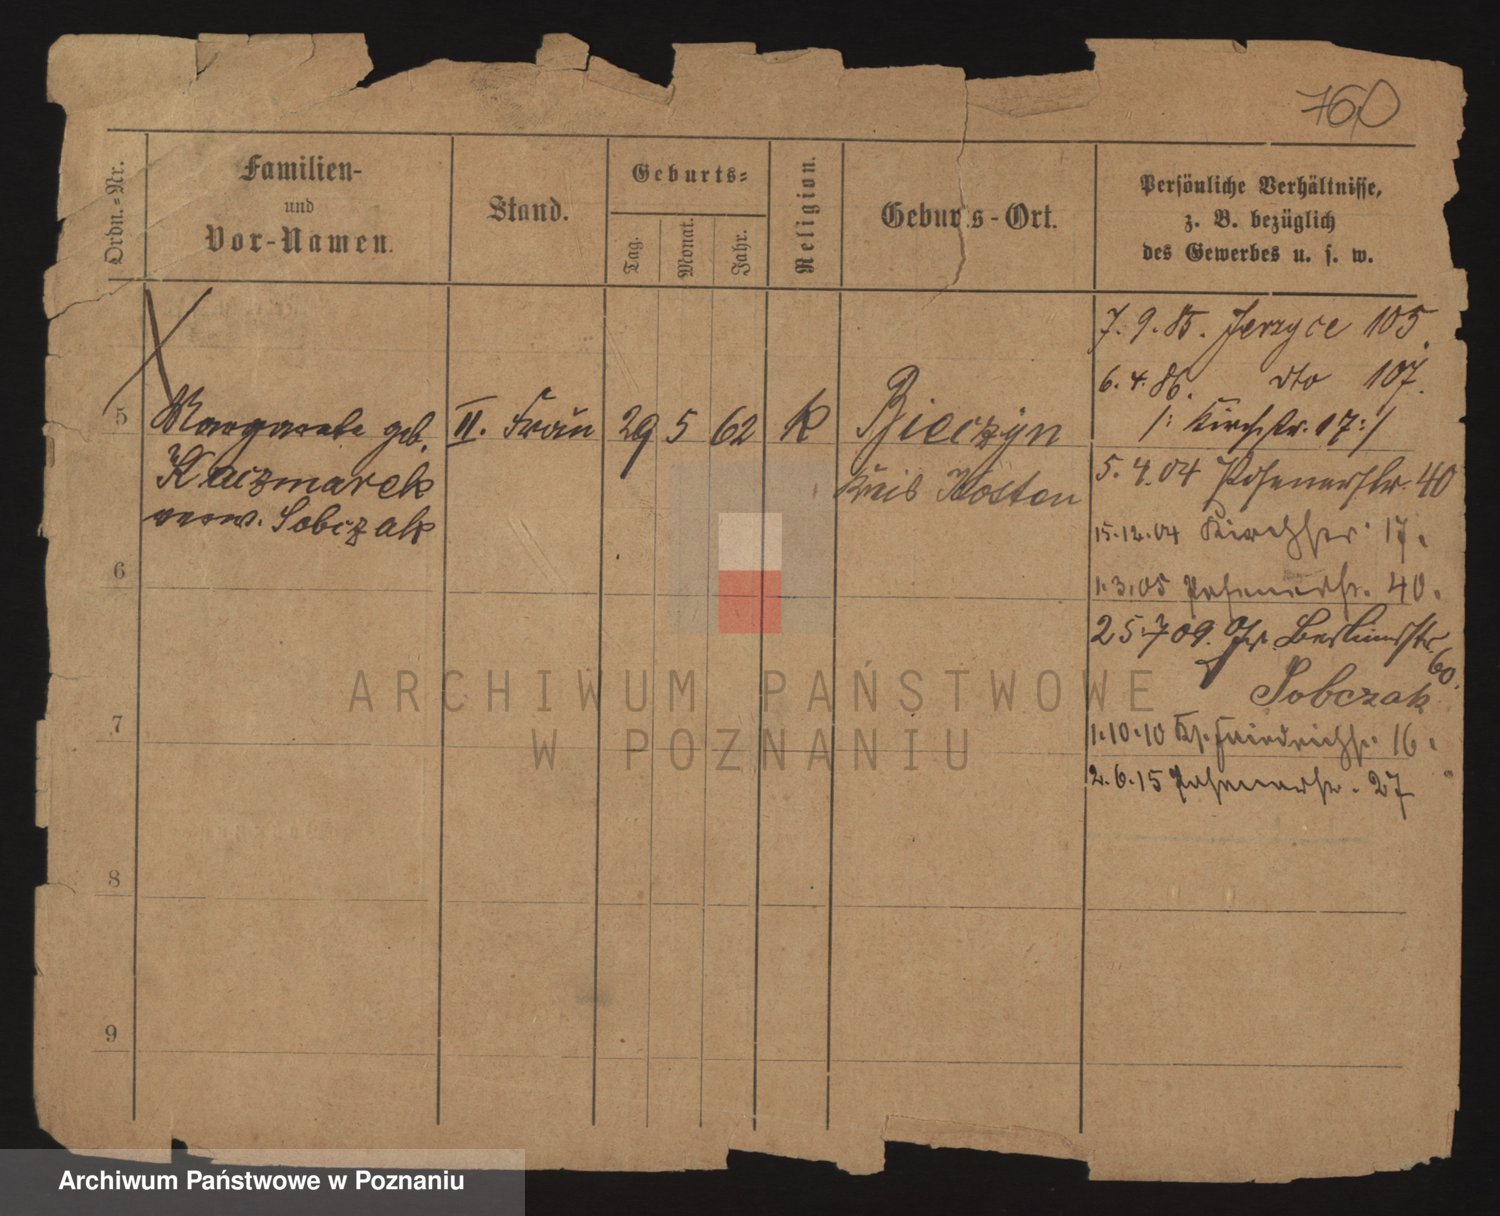 760
Ordn.-Nr.
Familien-
und
Vor-Namen.
Stand.
Geburts-
Tag.
Monat.
Jahr.
Religion.
Geburts-Ort.
Persönliche Verhältnisse,
z. B. bezüglich
des Gewerbes u. s. w.
7. 9. 85. Jerzyce 105.
6. 4. 86. dto 107.
/: Kirchstr. 17 :/
5 Margarete geb. II. Frau 29 5 62 k Bieczyn
Kaczmarek
verw. Sobczak
Kreis Kosten
5. 4. 04 Posenerstr. 40
15. 12. 04 Kirchstr. 17.
1. 3. 05 Posenerstr. 40.
25. 7 09. Gr. Berlinerstr.
60.
Sobczak
1. 10. 10 Friedrichstr. 16.
2. 6. 15 Posenerstr. 27
6
7
8
9
ARCHIWUM PAŃSTWOWE
W POZNANIU
Archiwum Państwowe w Poznaniu